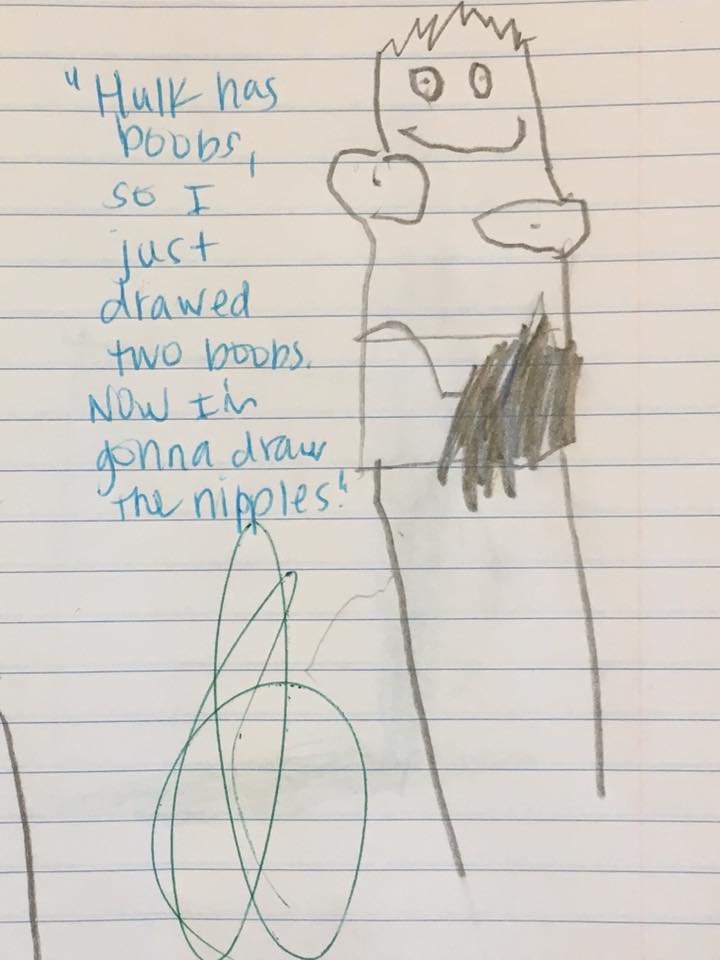 "Hulk has
boobs,
so I
just
drawed
two boobs.
Now I'm
gonna draw
the nipples."